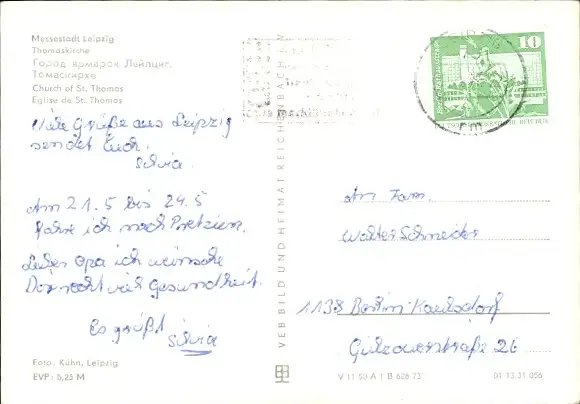 Messestadt Leipzig
Thomaskirche
Город ярмарок Лейпциг.
Томаскирхе
Church of St. Thomas
Eglise de St. Thomas
Viele Grüße aus Leipzig
sendet Euch.
Silvia.
Am 21.5 bis 24.5
fahre ich nach Pretzien.
Lieber Opa ich wünsche
Dir recht viel Gesundheit.
Es grüßt
Silvia
Foto: Kühn, Leipzig
EVP: 0,25 M
VEB BILD UND HEIMAT REICHENBACH
10
An Fam.
Walter Schneider
1138 Berlin Kaulsdorf
Gülzowerstraße 26
V 11 50 A 1 B 626/73
01 13 31 056